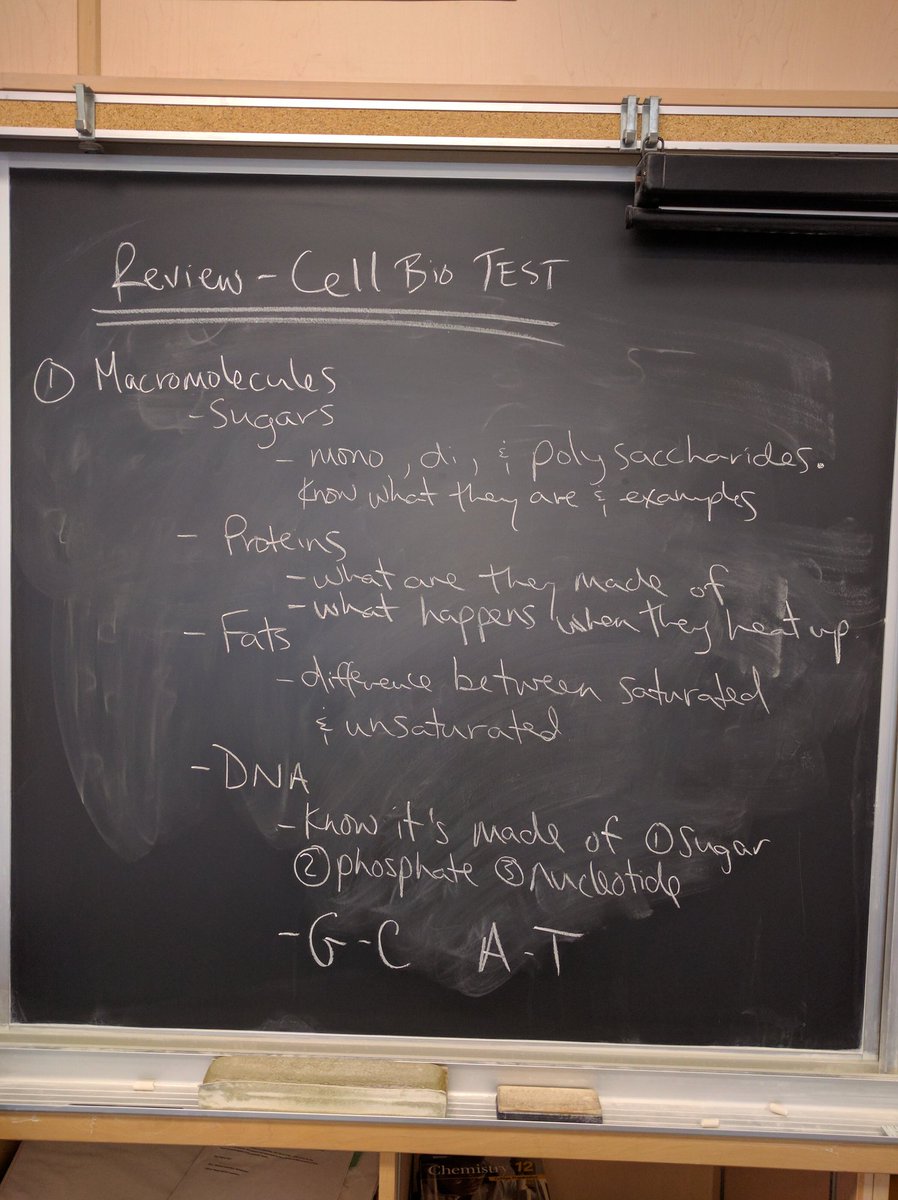 Review - Cell Bio TEST
① Macromolecules
- Sugars
- mono, di, & polysaccharides.
Know what they are & examples
- Proteins
- what are they made of
- what happens when they heat up.
- Fats
- difference between saturated
& unsaturated
- DNA
- Know it's made of ① Sugar
② phosphate ③ nucleotide
- G-C A-T
Chemistry 12